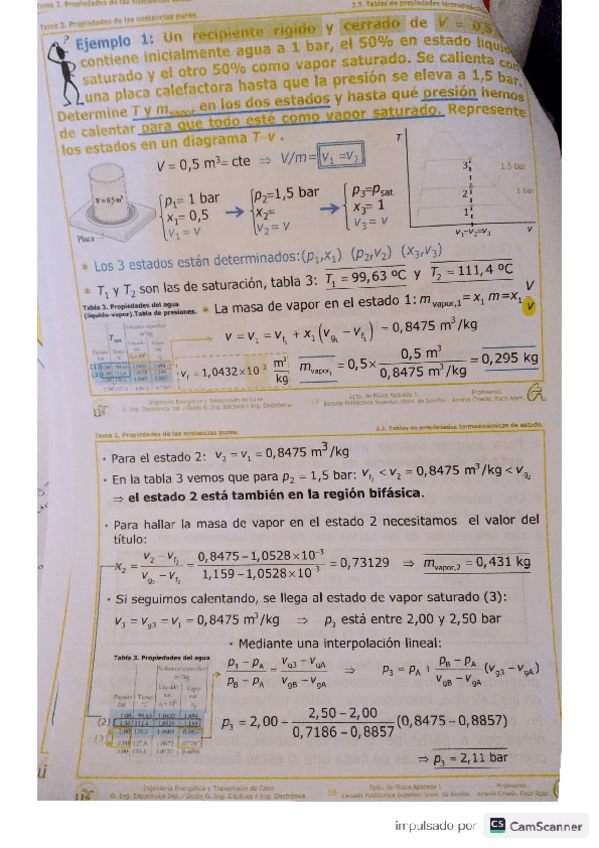 Tema 2. Propiedades de las sustancias puras.
2.3. Tablas de propiedades termodinámicas
Ejemplo 1: Un recipiente rígido y cerrado de V = 0,5
contiene inicialmente agua a 1 bar, el 50% en estado líquido
saturado y el otro 50% como vapor saturado. Se calienta con
una placa calefactora hasta que la presión se eleva a 1,5 bar.
Determine T y m vapor en los dos estados y hasta qué presión hemos
de calentar para que todo esté como vapor saturado. Represente
los estados en un diagrama T-v.
V = 0,5 m³= cte ⇒ V/m= v₁ =v₂
T
3
2
1
1,5 bar
1 bar
v₁=v₂=v₃
v
V=0,5m³
Placa
p₁= 1 bar
x₁= 0,5
v₁ = v
p₂=1,5 bar
x₂=
v₂ = v
p₃=psat
x₃= 1
v₃ = v
* Los 3 estados están determinados:(p₁,x₁) (p₂,v₂) (x₃,v₃)
* T₁ y T₂ son las de saturación, tabla 3: T₁ = 99,63 ºC y T₂ = 111,4 ºC
Tabla 3. Propiedades del agua
(líquido-vapor).Tabla de presiones.
* La masa de vapor en el estado 1: m vapor,1 = x₁ m =x₁ V/v
v = v₁ = vf₁ + x₁(vg₁ − vf₁) = 0,8475 m³/kg
vf₁ = 1,0432×10⁻³ m³/kg
m vapor₁ = 0,5× 0,5 m³ / 0,8475 m³/kg = 0,295 kg
Ingeniería Energética y Transmisión de Calor
G. Ing. Electrónica Ind. / Doble G. Ing. Eléctrica e Ing. Electrónica
17
Dpto. de Física Aplicada I.
Escuela Politécnica Superior, Univ. de Sevilla.
Tema 2. Propiedades de las sustancias puras.
2.3. Tablas de propiedades termodinámicas de estado.
• Para el estado 2: v₂ = v₁ = 0,8475 m³/kg
• En la tabla 3 vemos que para p₂ = 1,5 bar: vf₂ < v₂ = 0,8475 m³/kg < vg₂
⇒ el estado 2 está también en la región bifásica.
• Para hallar la masa de vapor en el estado 2 necesitamos el valor del
título:
x₂ = v₂ − vf₂ / vg₂ − vf₂ = 0,8475 − 1,0528×10⁻³ / 1,159 − 1,0528×10⁻³ = 0,73129 ⇒ m vapor,2 = 0,431 kg
• Si seguimos calentando, se llega al estado de vapor saturado (3):
v₃ = vg₃ = v₁ = 0,8475 m³/kg ⇒ p₃ está entre 2,00 y 2,50 bar
• Mediante una interpolación lineal:
Tabla 3. Propiedades del agua
p₃ − pA / pB − pA = vg3 − vgA / vgB − vgA ⇒ p₃ = pA + pB − pA / vgB − vgA (vg3 − vgA)
p₃ = 2,00 + 2,50 − 2,00 / 0,7186 − 0,8857 (0,8475 − 0,8857)
⇒ p₃ = 2,11 bar
Ingeniería Energética y Transmisión de Calor
G. Ing. Electrónica Ind. / Doble G. Ing. Eléctrica e Ing. Electrónica
18
Dpto. de Física Aplicada I.
Escuela Politécnica Superior, Univ. de Sevilla.
impulsado por CS CamScanner